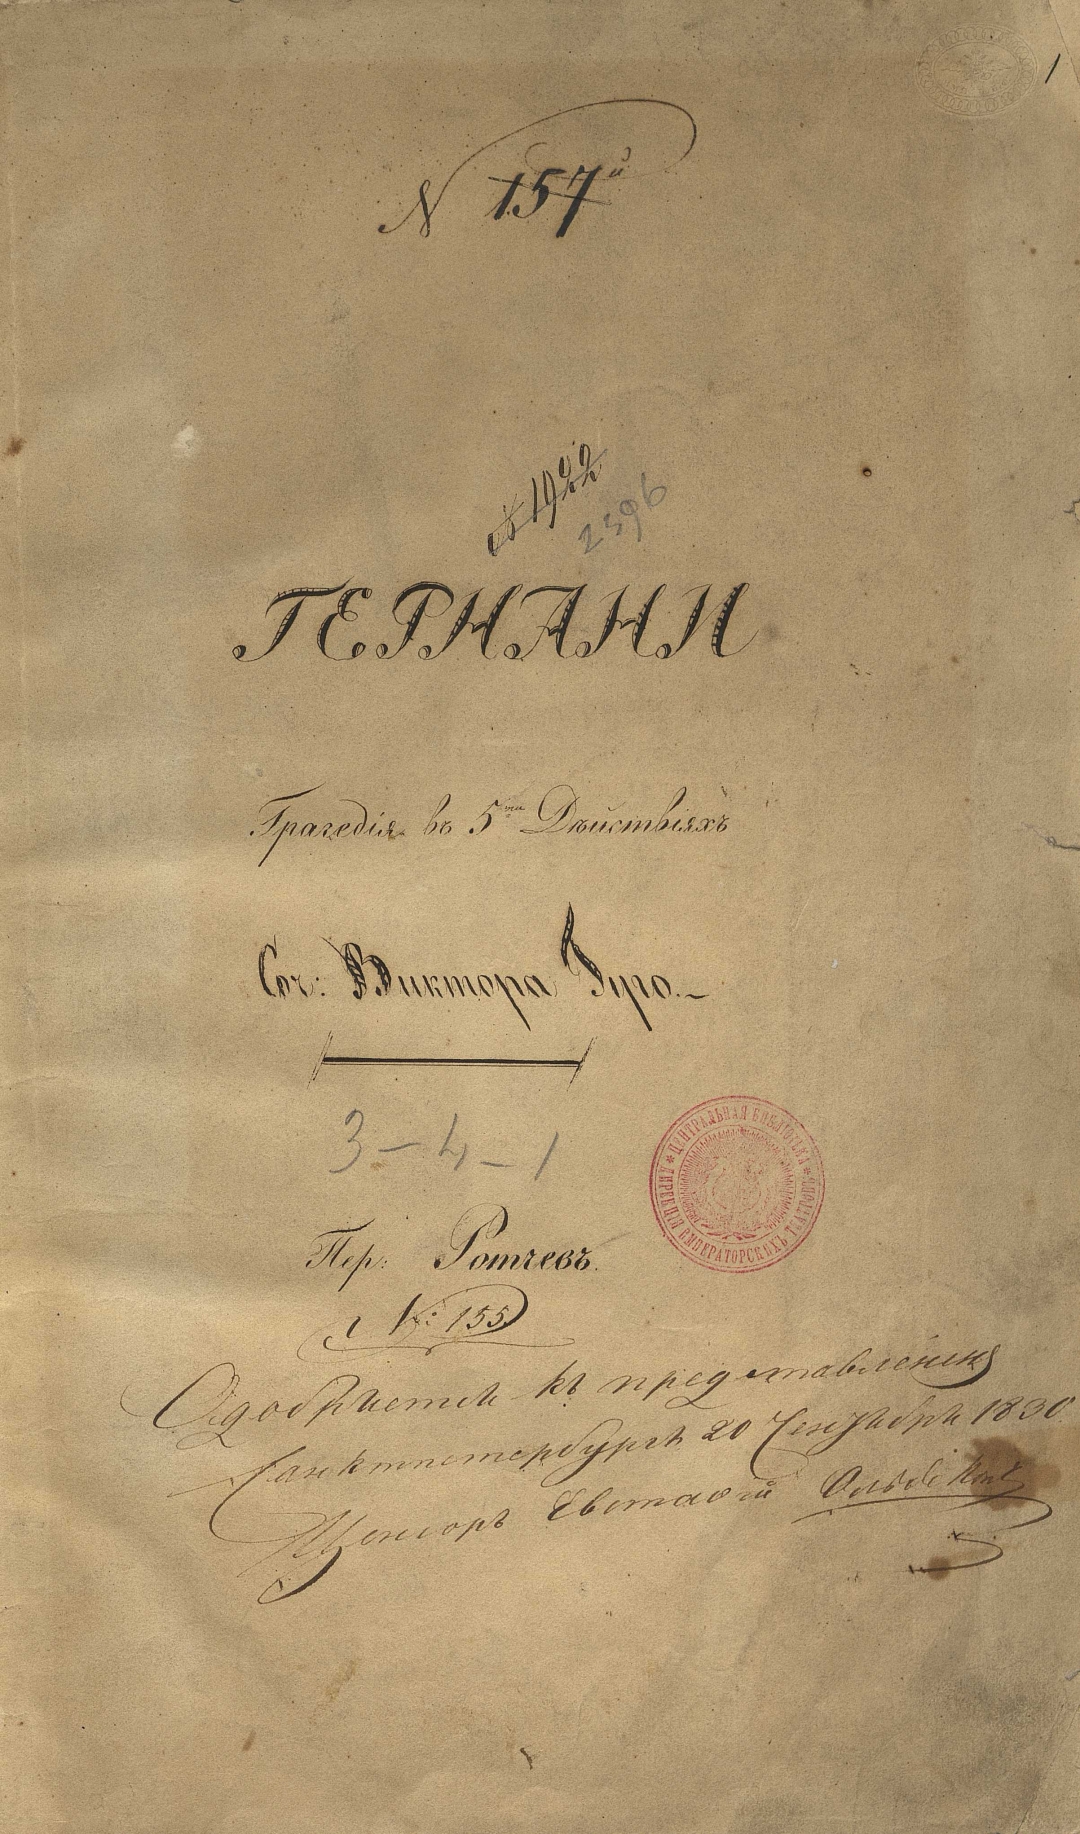 1
N 157й
№ 1922
2396
ГЕРНАНИ
Трагедія въ 5ти Дѣйствіяхъ
Соч: Виктора Гуго.
3-4-1
ЦЕНТРАЛЬНАЯ БИБЛІОТЕКА
ДИРЕКЦІИ ИМПЕРАТОРСКИХЪ ТЕАТРОВЪ
Пер: Ротчевъ.
№: 155
Одобряется къ представленію
Санктпетербургъ 20 Сентября 1830
Ценсоръ Евстафій Ольдекопъ